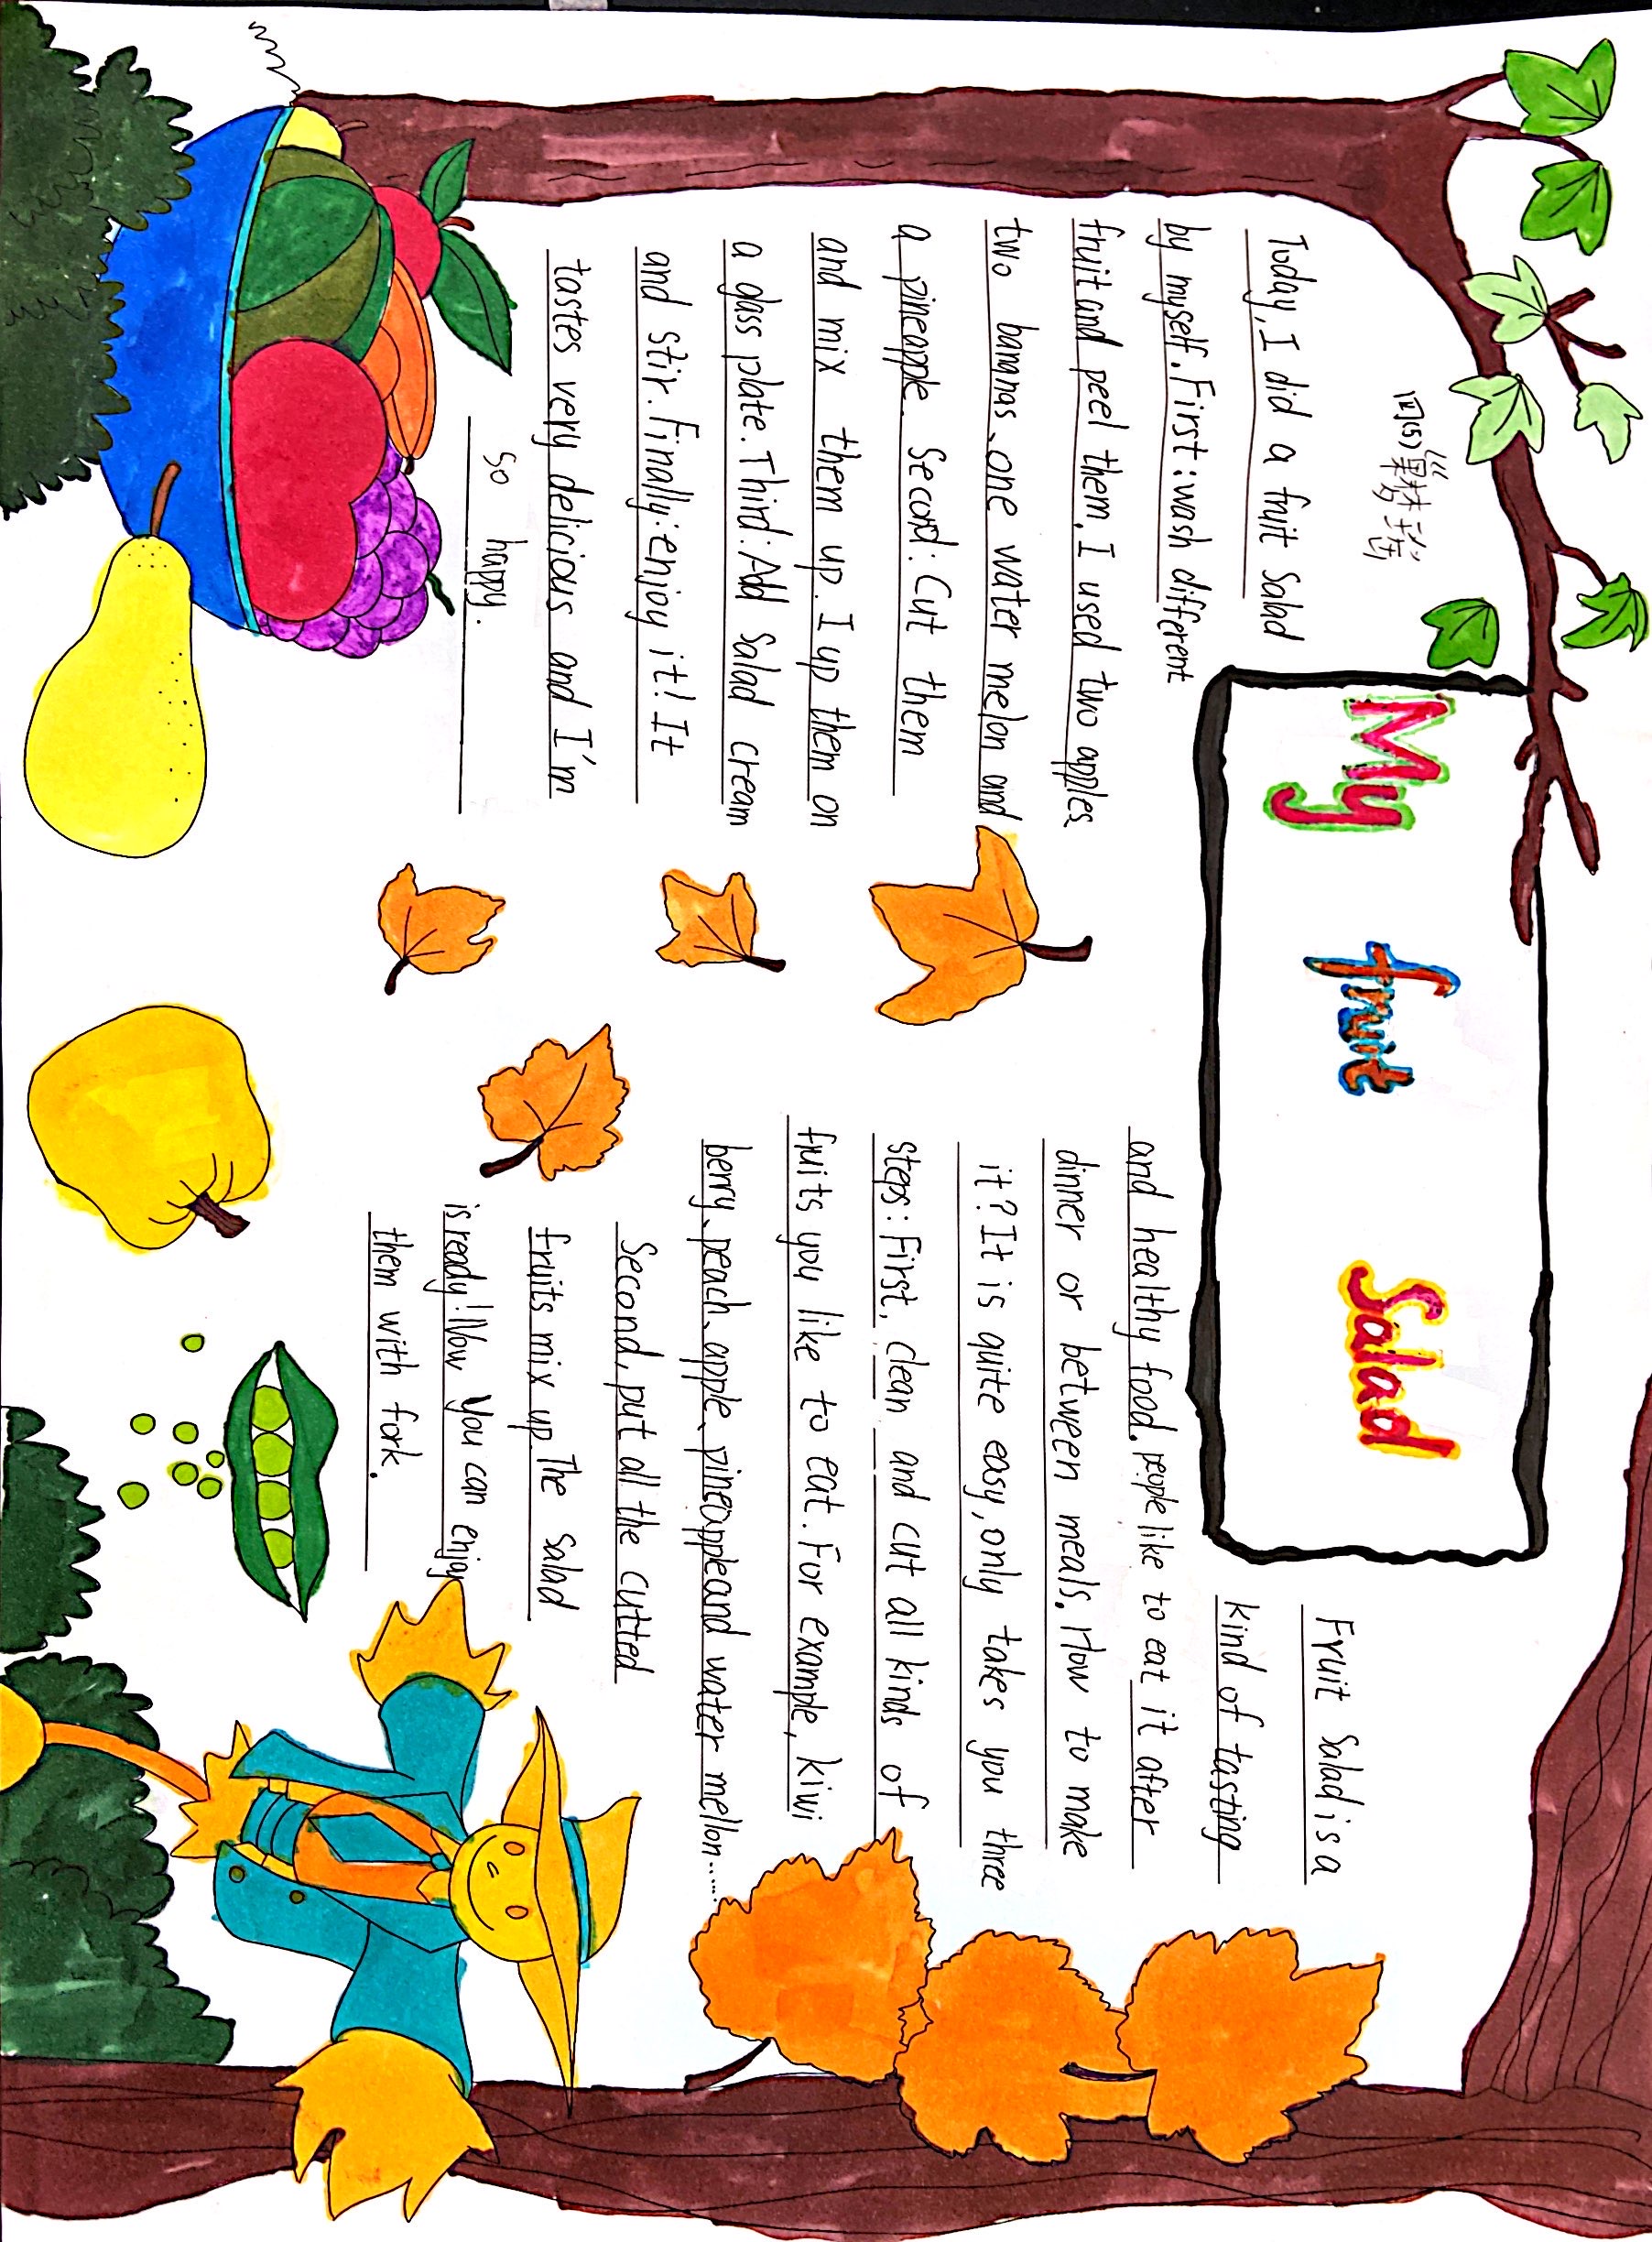 My fruit Salad
Today, I did a fruit Salad
by myself. First: wash different
fruit and peel them. I used two apples、
two bannas、one water melon and
a pineapple. Second: Cut them
and mix them up. I up them on
a glass plate. Third: Add Salad cream
and stir. Finally: enjoy it! It
tastes very delicious and I'm
so happy.
Fruit Salad is a
kind of tasting
and healthy food. people like to eat it after
dinner or between meals. How to make
it? It is quite easy, only takes you three
steps: First, clean and cut all kinds of
fruits you like to eat. For example, kiwi
berry、peach、apple、pineapple and water mellon......
Second, put all the cutted
fruits mix up. The salad
is ready! Now you can enjoy
them with fork.